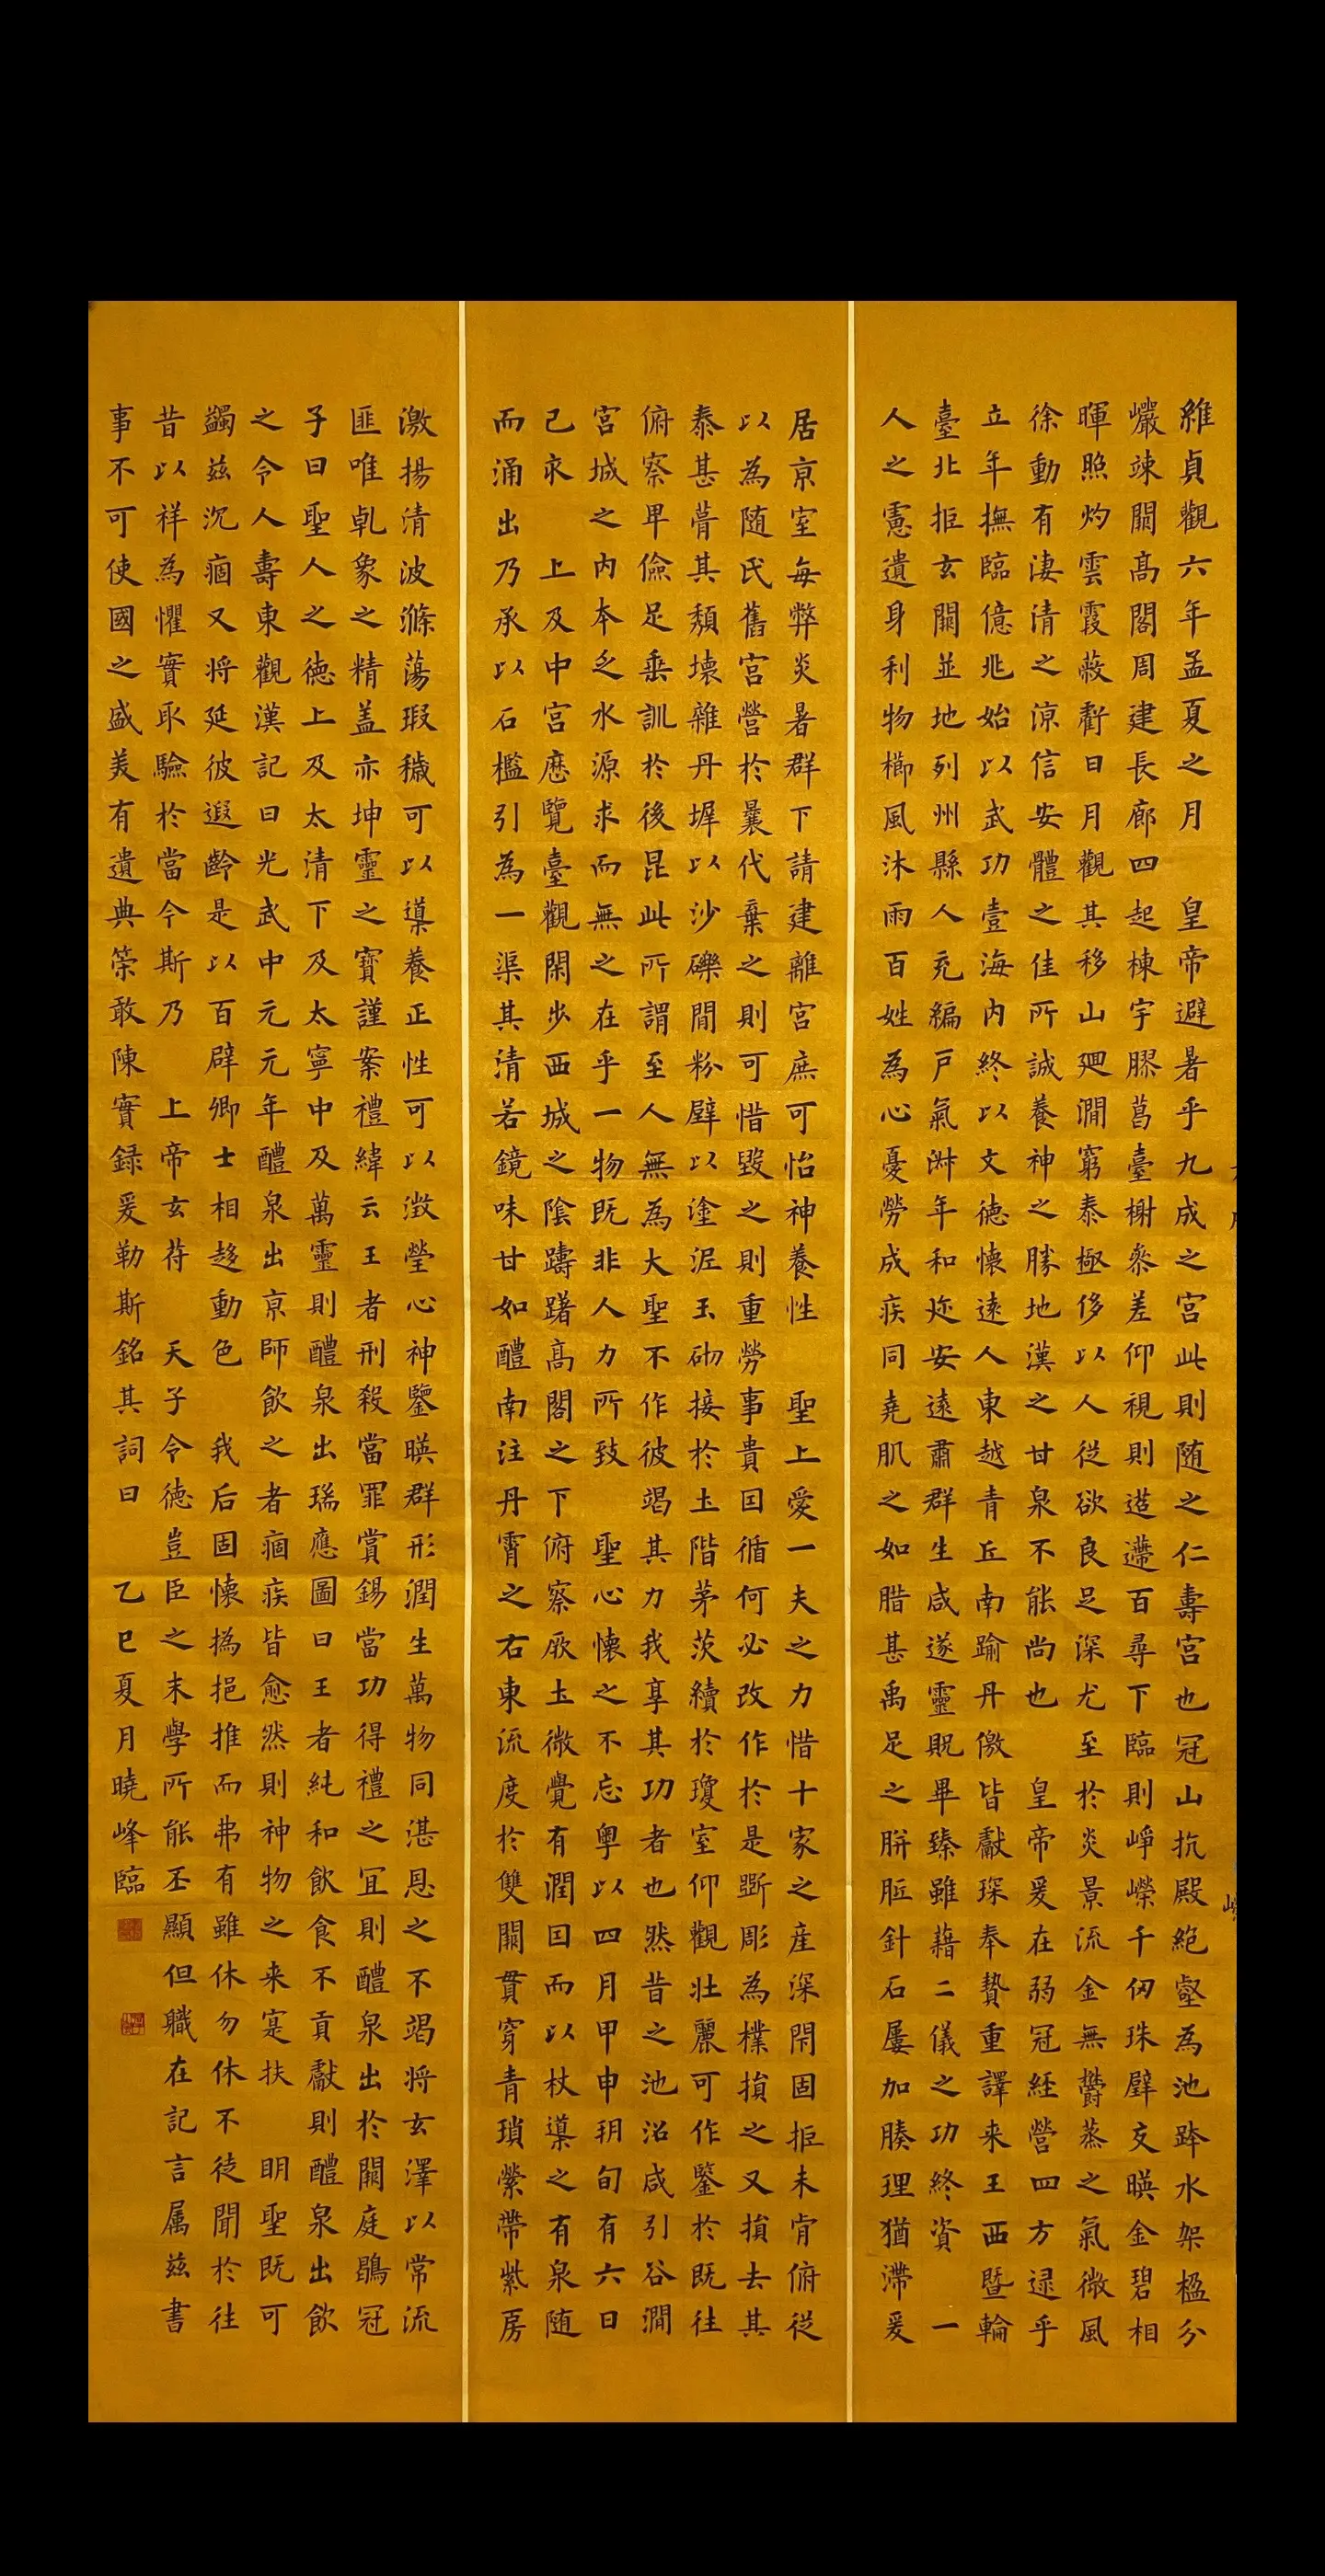 維貞觀六年孟夏之月 皇帝避暑乎九成之宮此則随之仁壽宮也冠山抗殿絶壑為池跨水架楹分
巖竦闕高閣周建長廊四起棟宇膠葛臺榭參差仰視則迢遰百尋下臨則崢嶸千仞珠璧交暎金碧相
暉照灼雲霞蔽虧日月觀其移山廻澗窮泰極侈以人從欲良足深尤至於炎景流金無鬱蒸之氣微風
徐動有淒清之涼信安體之佳所誠養神之勝地漢之甘泉不能尚也 皇帝爰在弱冠經營四方逮乎
立年撫臨億兆始以武功壹海內終以文德懷遠人東越青丘南踰丹徼皆獻琛奉贄重譯来王西暨輪
臺北拒玄闕並地列州縣人充編戶氣淑年和迩安遠肅群生咸遂靈貺畢臻雖藉二儀之功終資 一
人之慮遺身利物櫛風沐雨百姓為心憂勞成疾同堯肌之如腊甚禹足之胼胝針石屢加腠理猶滯爰
居京室每弊炎暑群下請建離宮庶可怡神養性 聖上愛一夫之力惜十家之產深閇固拒未肯俯從
以為随氏舊宮營於曩代棄之則可惜毀之則重勞事貴因循何必改作於是斵彫為樸損之又損去其
泰甚葺其頹壞雜丹墀以沙礫間粉壁以塗泥玉砌接於土階茅茨續於瓊室仰觀壯麗可作鑒於既往
俯察卑儉足垂訓於後昆此所謂至人無為大聖不作彼竭其力我享其功者也然昔之池沼咸引谷澗
宮城之內本乏水源求而無之在乎一物既非人力所致 聖心懷之不忘粤以四月甲申朔旬有六日
己亥 上及中宮歷覽臺觀閑步西城之陰躊躇高閣之下俯察厥土微覺有潤因而以杖導之有泉随
而涌出乃承以石檻引為一渠其清若鏡味甘如醴南注丹霄之右東流度於雙闕貫穿青瑣縈帶紫房
激揚清波滌蕩瑕穢可以導養正性可以澂瑩心神鑒暎群形潤生萬物同湛恩之不竭將玄澤以常流
匪唯乹象之精盖亦坤靈之寶謹案禮緯云王者刑殺當罪賞錫當功得禮之宜則醴泉出於闕庭鶡冠
子曰聖人之德上及太清下及太寧中及萬靈則醴泉出瑞應圖曰王者純和飲食不貢獻則醴泉出飲
之令人壽東觀漢記曰光武中元元年醴泉出京師飲之者痼疾皆愈然則神物之来寔扶 明聖既可
蠲兹沉痼又將延彼遐齡是以百辟卿士相趍動色 我后固懷撝挹推而弗有雖休勿休不徒聞於往
昔以祥為懼實取驗於當今斯乃 上帝玄苻 天子令德豈臣之末學所能丕顯但職在記言属兹書
事不可使國之盛美有遺典策敢陳實録爰勒斯銘其詞曰 乙巳夏月曉峰臨